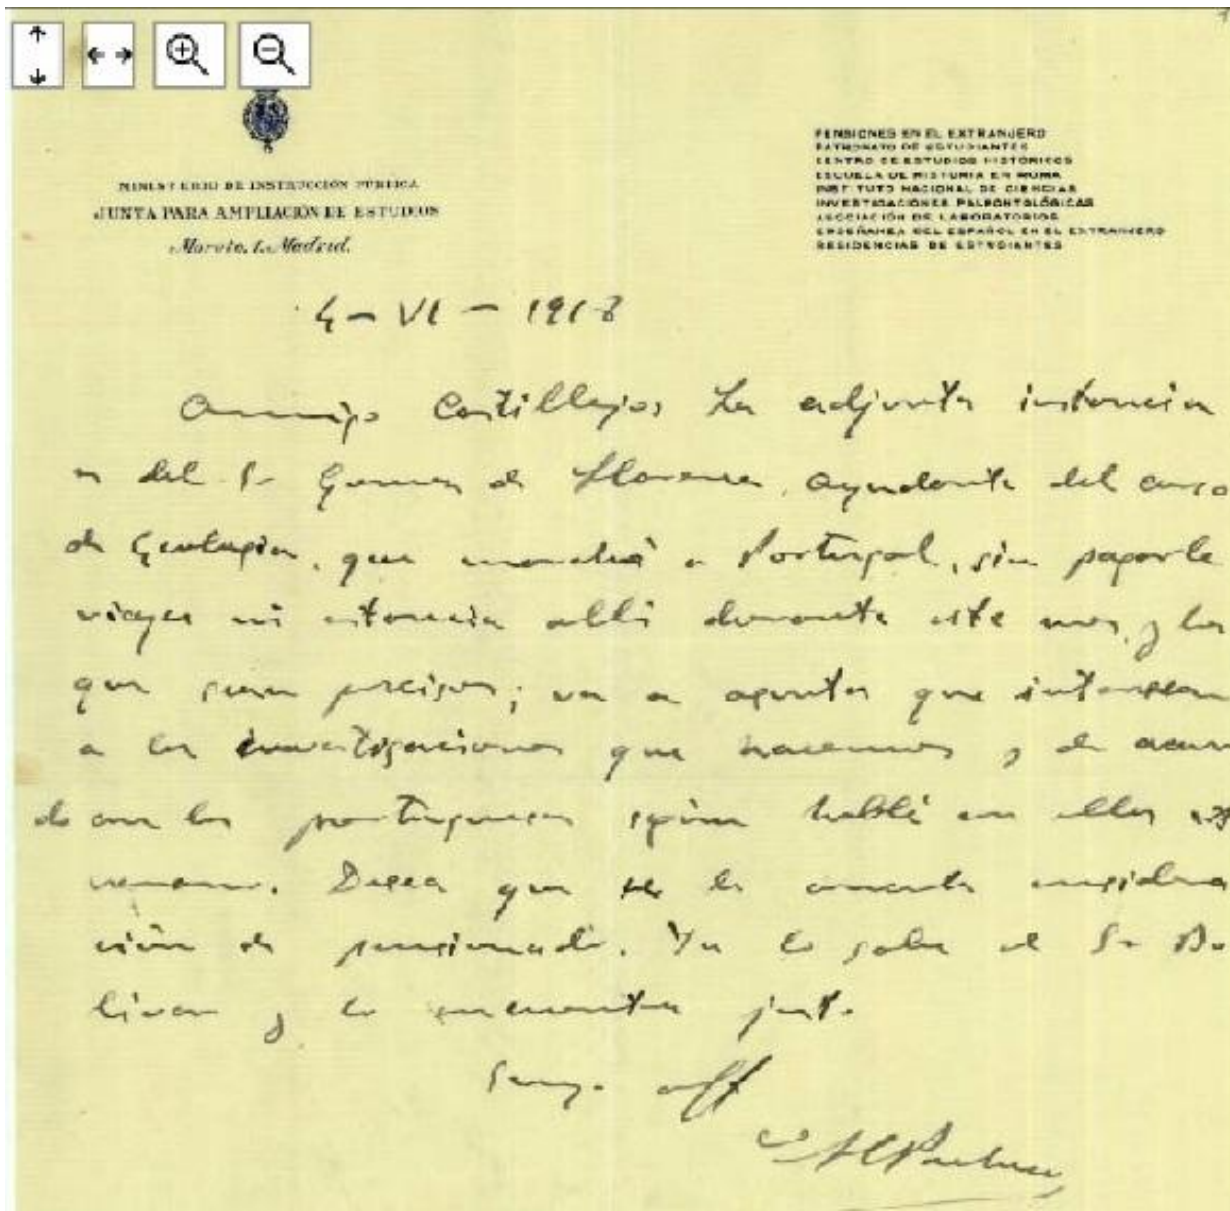 MINISTERIO DE INSTRUCCIÓN PÚBLICA
JUNTA PARA AMPLIACIÓN DE ESTUDIOS
Moreto, 1. Madrid.
PENSIONES EN EL EXTRANJERO
PATRONATO DE ESTUDIANTES
CENTRO DE ESTUDIOS HISTÓRICOS
ESCUELA DE HISTORIA EN ROMA
INSTITUTO NACIONAL DE CIENCIAS
INVESTIGACIONES PALEONTOLÓGICAS
ASOCIACIÓN DE LABORATORIOS
ENSEÑANZA DEL ESPAÑOL EN EL EXTRANJERO
RESIDENCIAS DE ESTUDIANTES
4 - VI - 1918
Amigo Castillejos La adjunta instancia
es del Sr Gomez de Llarena, ayudante del curso
de Geologia, que marchó a Portugal, sin pagarle
viages ni estancia alli durante este mes, y los
que sean precisos; va a asuntos que interesan
a las investigaciones que hacemos y de acuer
do con los portugueses según hablé con ellos
verano. Desea que se le conceda considera
ción de pensionado. Ya lo sabe el Sr Bo
livar y lo encuentra justo.
Suyo aff
E H Pacheco